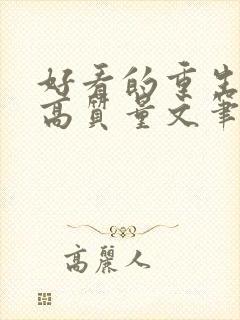 好看的重生
高質量文筆
高麗人